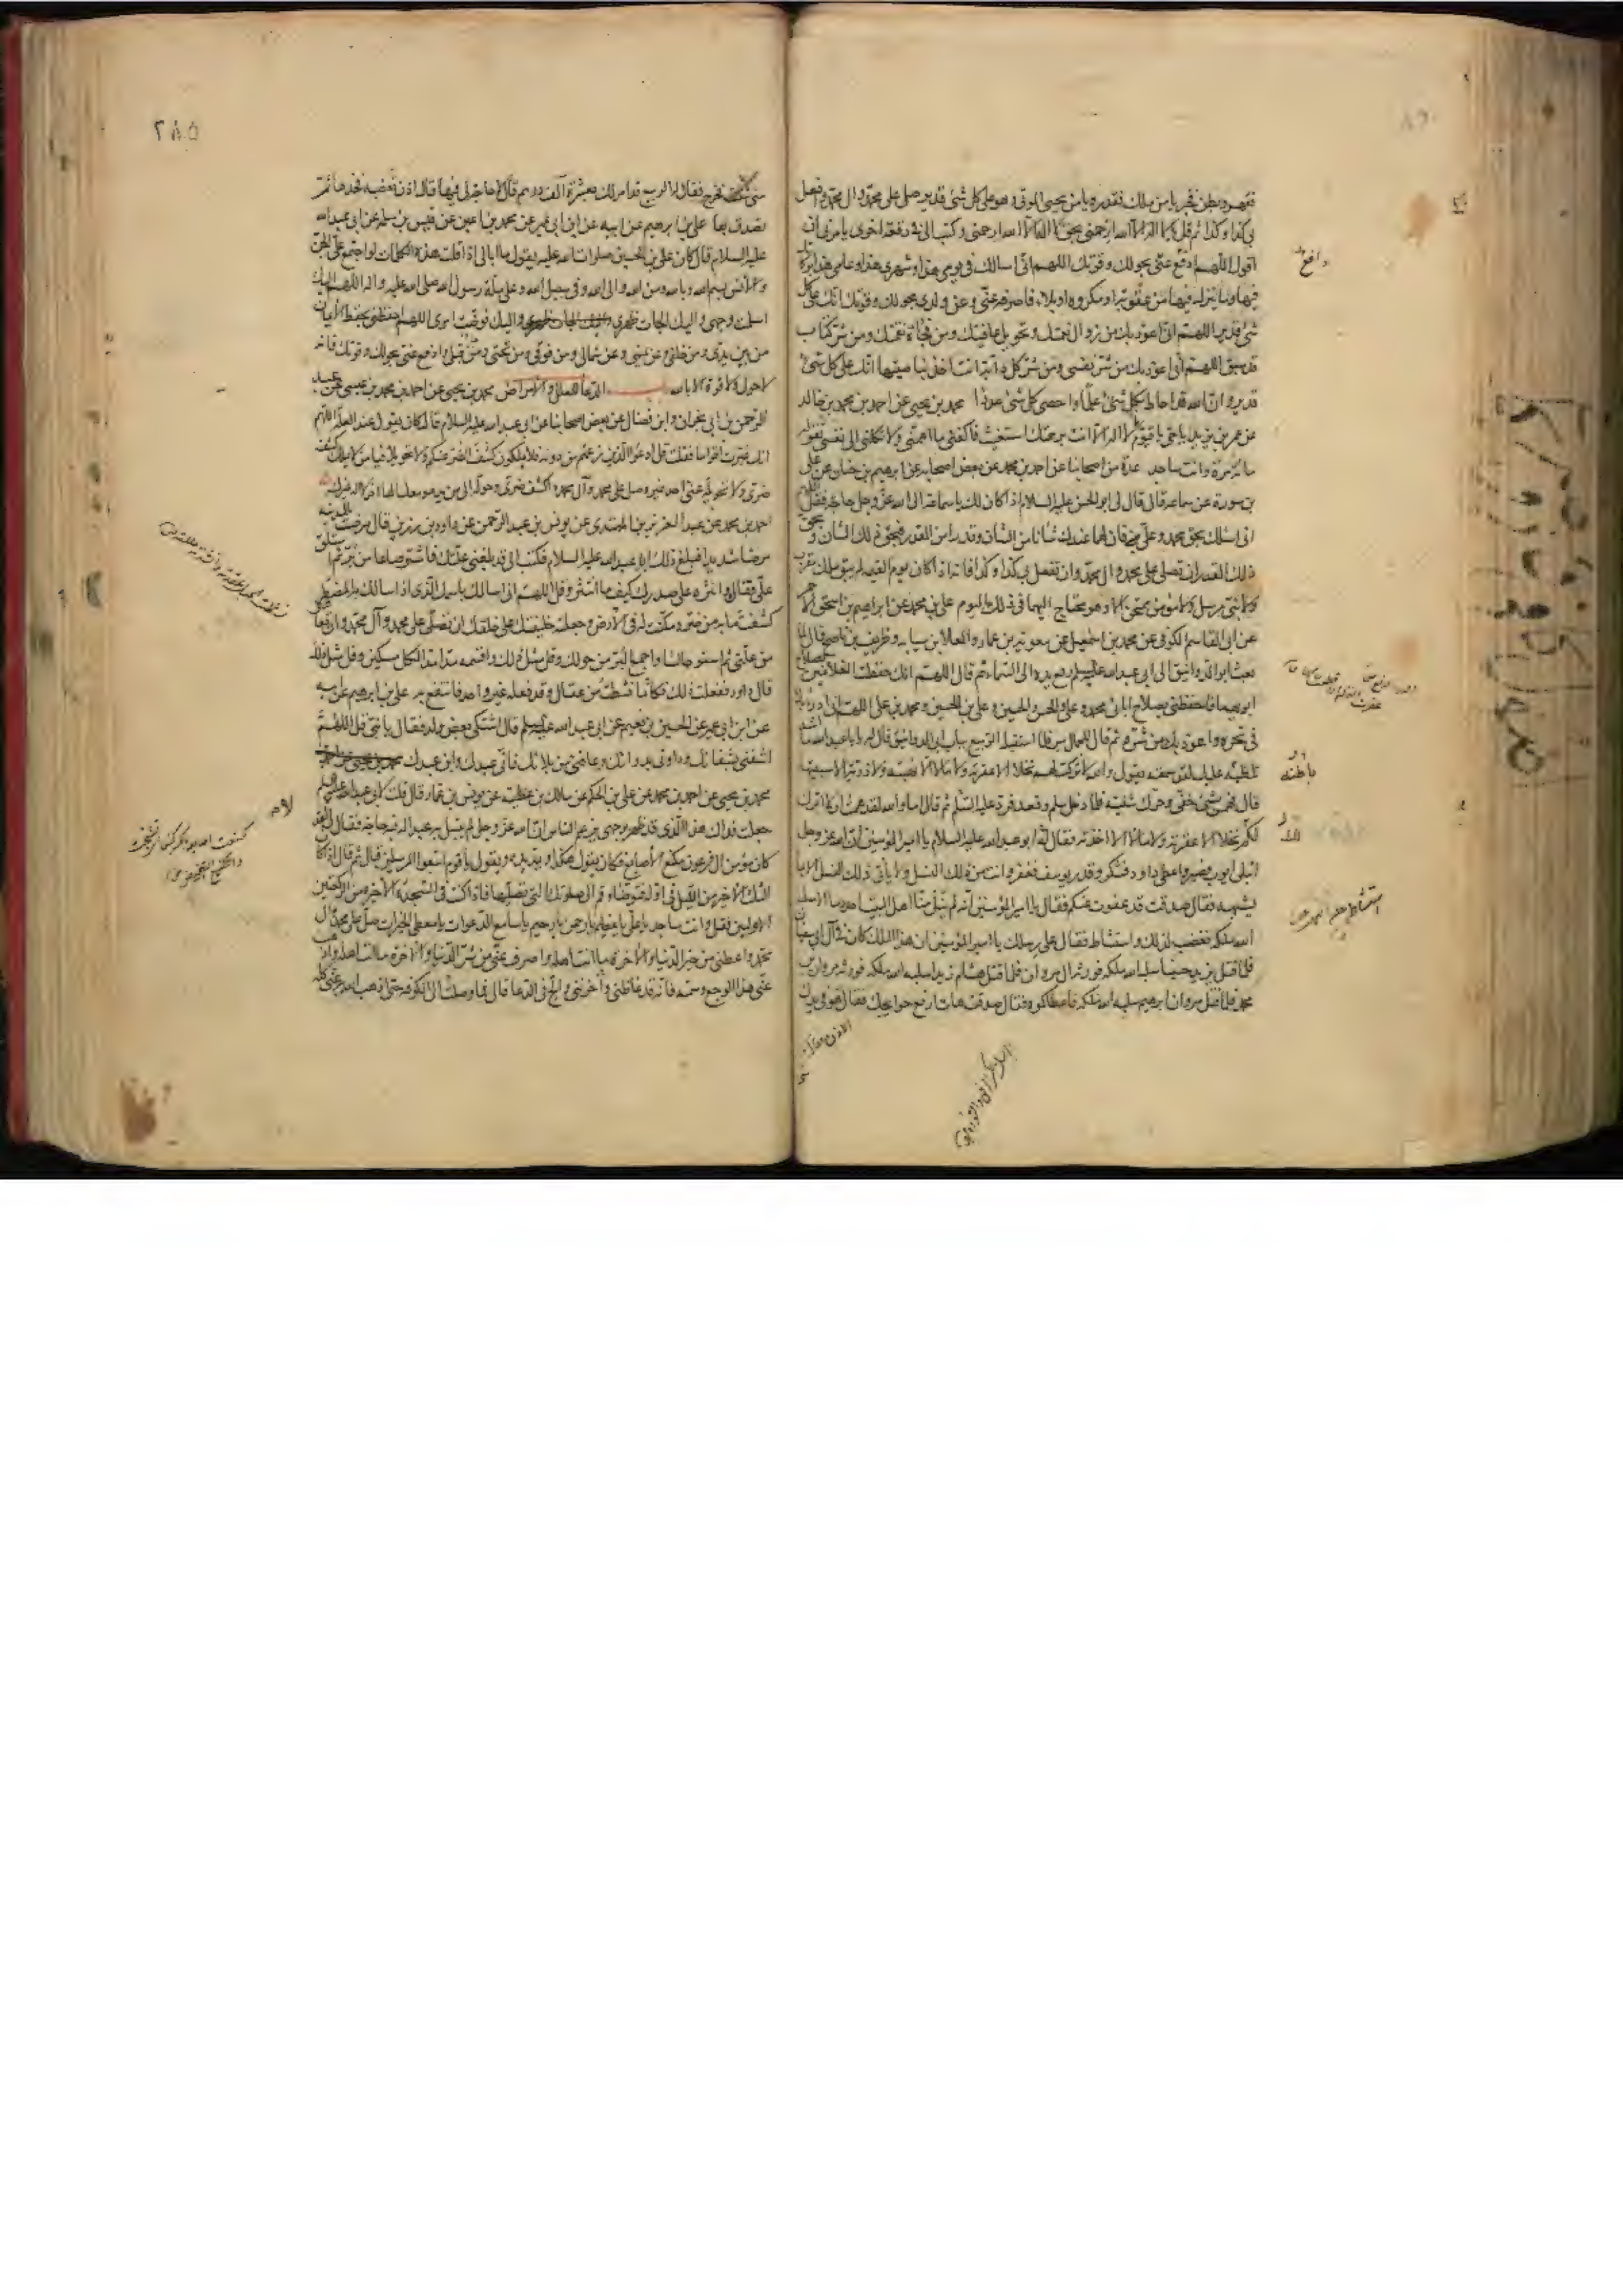 فقهر وبطن فخبر يا من ملك فقدر ويا من يحيى الموتى وهو على كل شئ قدير صل على محمد وال محمد وافعل
بى كذا وكذا ثم قل لا اله الا الله ارحمنى بحق لا اله الا الله ارحمنى وكتب الى فى رقعة اخرى يأمرنى ان
اقول اللهم ادفع عنى بحولك وقوتك اللهم انى اسالك فى يومى هذا وشهرى هذا وعامى هذا بركاتك
فيها وما ينزل فيها من عقوبة او مكروه او بلاء فاصرفه عنى وعن ولدى بحولك وقوتك انك على كل
شئ قدير اللهم انى اعوذ بك من زوال نعمتك وتحويل عافيتك ومن فجأة نقمتك ومن شر كتاب
قد سبق اللهم انى اعوذ بك من شر نفسى ومن شر كل دابة انت اخذ بناصيتها انك على كل شئ
قدير وان الله قد احاط بكل شئ علما واحصى كل شئ عددا محمد بن يحيى عن احمد بن محمد بن خالد
عن عمر بن يزيد يا حى يا قيوم لا اله الا انت برحمتك استغيث فاكفنى ما اهمنى ولا تكلنى الى نفسى تقوله
مائة مرة وانت ساجد عدة من اصحابنا عن احمد بن محمد عن بعض اصحابه عن ابرهيم بن حنان عن على
بن سورة عن سماعة قال قال لى ابو الحسن عليه السلام اذا كان لك يا سماعة الى الله عز وجل حاجة فقل اللهم
انى اسئلك بحق محمد وعلى فان لهما عندك شأنا من الشان وقدرا من القدر فبحق ذلك الشان وبحق
ذلك القدر ان تصلى على محمد وال محمد وان تفعل بى كذا وكذا فانه اذا كان يوم القيمه لم يبق ملك مقرب
ولا نبى مرسل ولا مؤمن ممتحن الا وهو يحتاج اليهما فى ذلك اليوم على بن محمد عن ابراهيم بن اسحق الاحمر
عن ابى القاسم الكوفى عن محمد بن اسمعيل عن معوية بن عمار والعلا بن سيابه وظريف بن ناصح قال لما
بعث ابو الدوانيق الى ابى عبد الله عليه السلم رفع يده الى السماء ثم قال اللهم انك حفظت الغلامين لصلاح
ابويهما فاحفظنى بصلاح ابائى محمد وعلى والحسن والحسين وعلى بن الحسين ومحمد بن على اللهم انى ادرأ بك
فى نحره واعوذ بك من شره ثم قال للجمال سر فلما استقبله الربيع بباب ابى الدوانيق قال له يا با عبد الله ما اشد
باطنه عليك لقد سمعته يقول والله لا تركت لهم نخلا الا عقرته ولا مالا الا نهبته ولا ذرية الا سبيتها
قال فهمس بشئ خفى وحرك شفتيه فلما دخل سلم وقعد فرد عليه السلم ثم قال اما والله لقد هممت ان لا اترك
لكم نخلا الا عقرته ولا مالا الا اخذته فقال له ابو عبد الله عليه السلام يا امير المؤمنين ان الله عز وجل
ابتلى ايوب فصبر واعطى داود فشكر وقدر يوسف فغفر وانت من ذلك النسل ولا يأتى ذلك النسل الا بما
يشبهه فقال صدقت قد عفوت عنكم فقال يا امير المؤمنين انه لم ينل منا اهل البيت احد دما الا سلبه
الله ملكه فغضب لذلك واستشاط فقال على رسلك يا امير المؤمنين ان هذا الملك كان فى آل ابى سفيان
فلما قتل يزيد حسينا سلبه الله ملكه فورثه ال مروان فلما قتل هشام زيدا سلبه الله ملكه فورثه مروان بن
محمد فلما قتل مروان ابرهيم سلبه الله ملكه فاعطاكموه فقال صدقت هات ارفع حوائجك فقال هو فى يدك
دافع
باطنه
٢٨٥
متى شئت فخرج فقال له الربيع قد امر لك بعشرة آلاف درهم قال لا حاجة لى فيها قال اذن تغضبه فخذها ثم
تصدق بها على بن ابرهيم عن ابيه عن ابن ابى عمير عن محمد بن اعين عن قيس بن سلمة عن ابى عبد الله
عليه السلام قال كان على بن الحسين صلوات الله عليه يقول ما ابالى اذا قلت هذه الكلمات لو اجتمع على الجن
والانس بسم الله وبالله ومن الله والى الله وفى سبيل الله وعلى ملة رسول الله صلى الله عليه واله اللهم اليك
اسلمت وجهى واليك الجات ظهرى واليك فوضت امرى اللهم احفظنى بحفظ الايمان
من بين يدى ومن خلفى وعن يمينى وعن شمالى ومن فوقى ومن تحتى ومن قبلى وادفع عنى بحولك وقوتك فانه
لا حول ولا قوة الا بالله الدعا للعلل والامراض محمد بن يحيى عن احمد بن محمد بن عيسى عن عبد
الرحمن بن ابى نجران وابن فضال عن بعض اصحابنا عن ابى عبد الله عليه السلام قال كان يقول عند العلة اللهم
انك عيرت اقواما فقلت قل ادعوا الذين زعمتم من دونه فلا يملكون كشف الضر عنكم ولا تحويلا فيا من لا يملك كشف
ضرى ولا تحويله عنى احد غيره صل على محمد وآل محمد واكشف ضرى وحوله الى من يدعو معك الها اخر لا اله غيرك
احمد بن محمد عن عبد العزيز بن المهتدى عن يونس بن عبد الرحمن عن داود بن رزين قال مرضت بالمدينه
مرضا شديدا فبلغ ذلك ابا عبد الله عليه السلام فكتب الى قد بلغنى علتك فاشتر صاعا من بر ثم استلق
على قفاك وانثره على صدرك كيف ما انتثر وقل اللهم انى اسالك باسمك الذى اذا سالك به المضطر
كشفت ما به من ضر ومكنت له فى الارض وجعلته خليفتك على خلقك ان تصلى على محمد وآل محمد وان تعافينى
من علتى ثم استو جالسا واجمع البر من حولك وقل مثل ذلك واقسمه مدا مدا لكل مسكين وقل مثل ذلك
قال داود ففعلت ذلك فكانما نشطت من عقال وقد فعله غير واحد فانتفع به على بن ابرهيم عن ابيه
عن ابن ابى عمير عن الحسين بن نعيم عن ابى عبد الله عليه السلم قال اشتكى بعض ولده فقال يا بنى قل اللهم
اشفنى بشفائك وداونى بدوائك وعافنى من بلائك فانى عبدك وابن عبدك
محمد بن يحيى عن احمد بن محمد عن على بن الحكم عن مالك بن عطيه عن يونس بن عمار قال قلت لابى عبد الله عليه السلم
جعلت فداك هذا الذى قد ظهر بوجهى يزعم الناس ان الله عز وجل لم يبتل به عبدا له فيه حاجة فقال لا لقد
كان مؤمن ال فرعون مكنع الاصابع فكان يقول هكذا ويمد يده ويقول يا قوم اتبعوا المرسلين قال ثم قال اذا كان
الثلث الاخير من الليل فى اوله فتوضاء وقم الى صلوتك التى تصليها فاذا كنت فى السجدة الاخيره من الركعتين
الاوليين فقل وانت ساجد يا على يا عظيم يا رحمن يا رحيم يا سامع الدعوات يا معطى الخيرات صل على محمد وآل
محمد واعطنى من خير الدنيا والآخرة ما انت اهله واصرف عنى من شر الدنيا والآخرة ما انت اهله واذهب
عنى هذا الوجع وسمه فانه قد غاظنى واحزننى والح فى الدعا قال فما وصلت الى الكوفه حتى اذهب الله به عنى كله